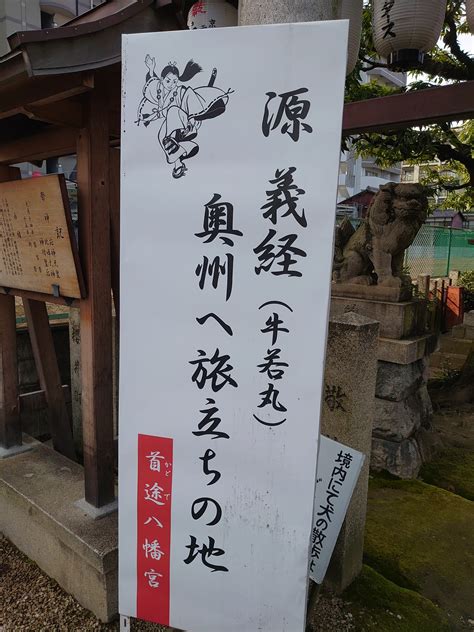 源 義経(牛若丸)
奥州へ旅立ちの地
首途八幡宮
かどで
境内にて犬の散歩
敬